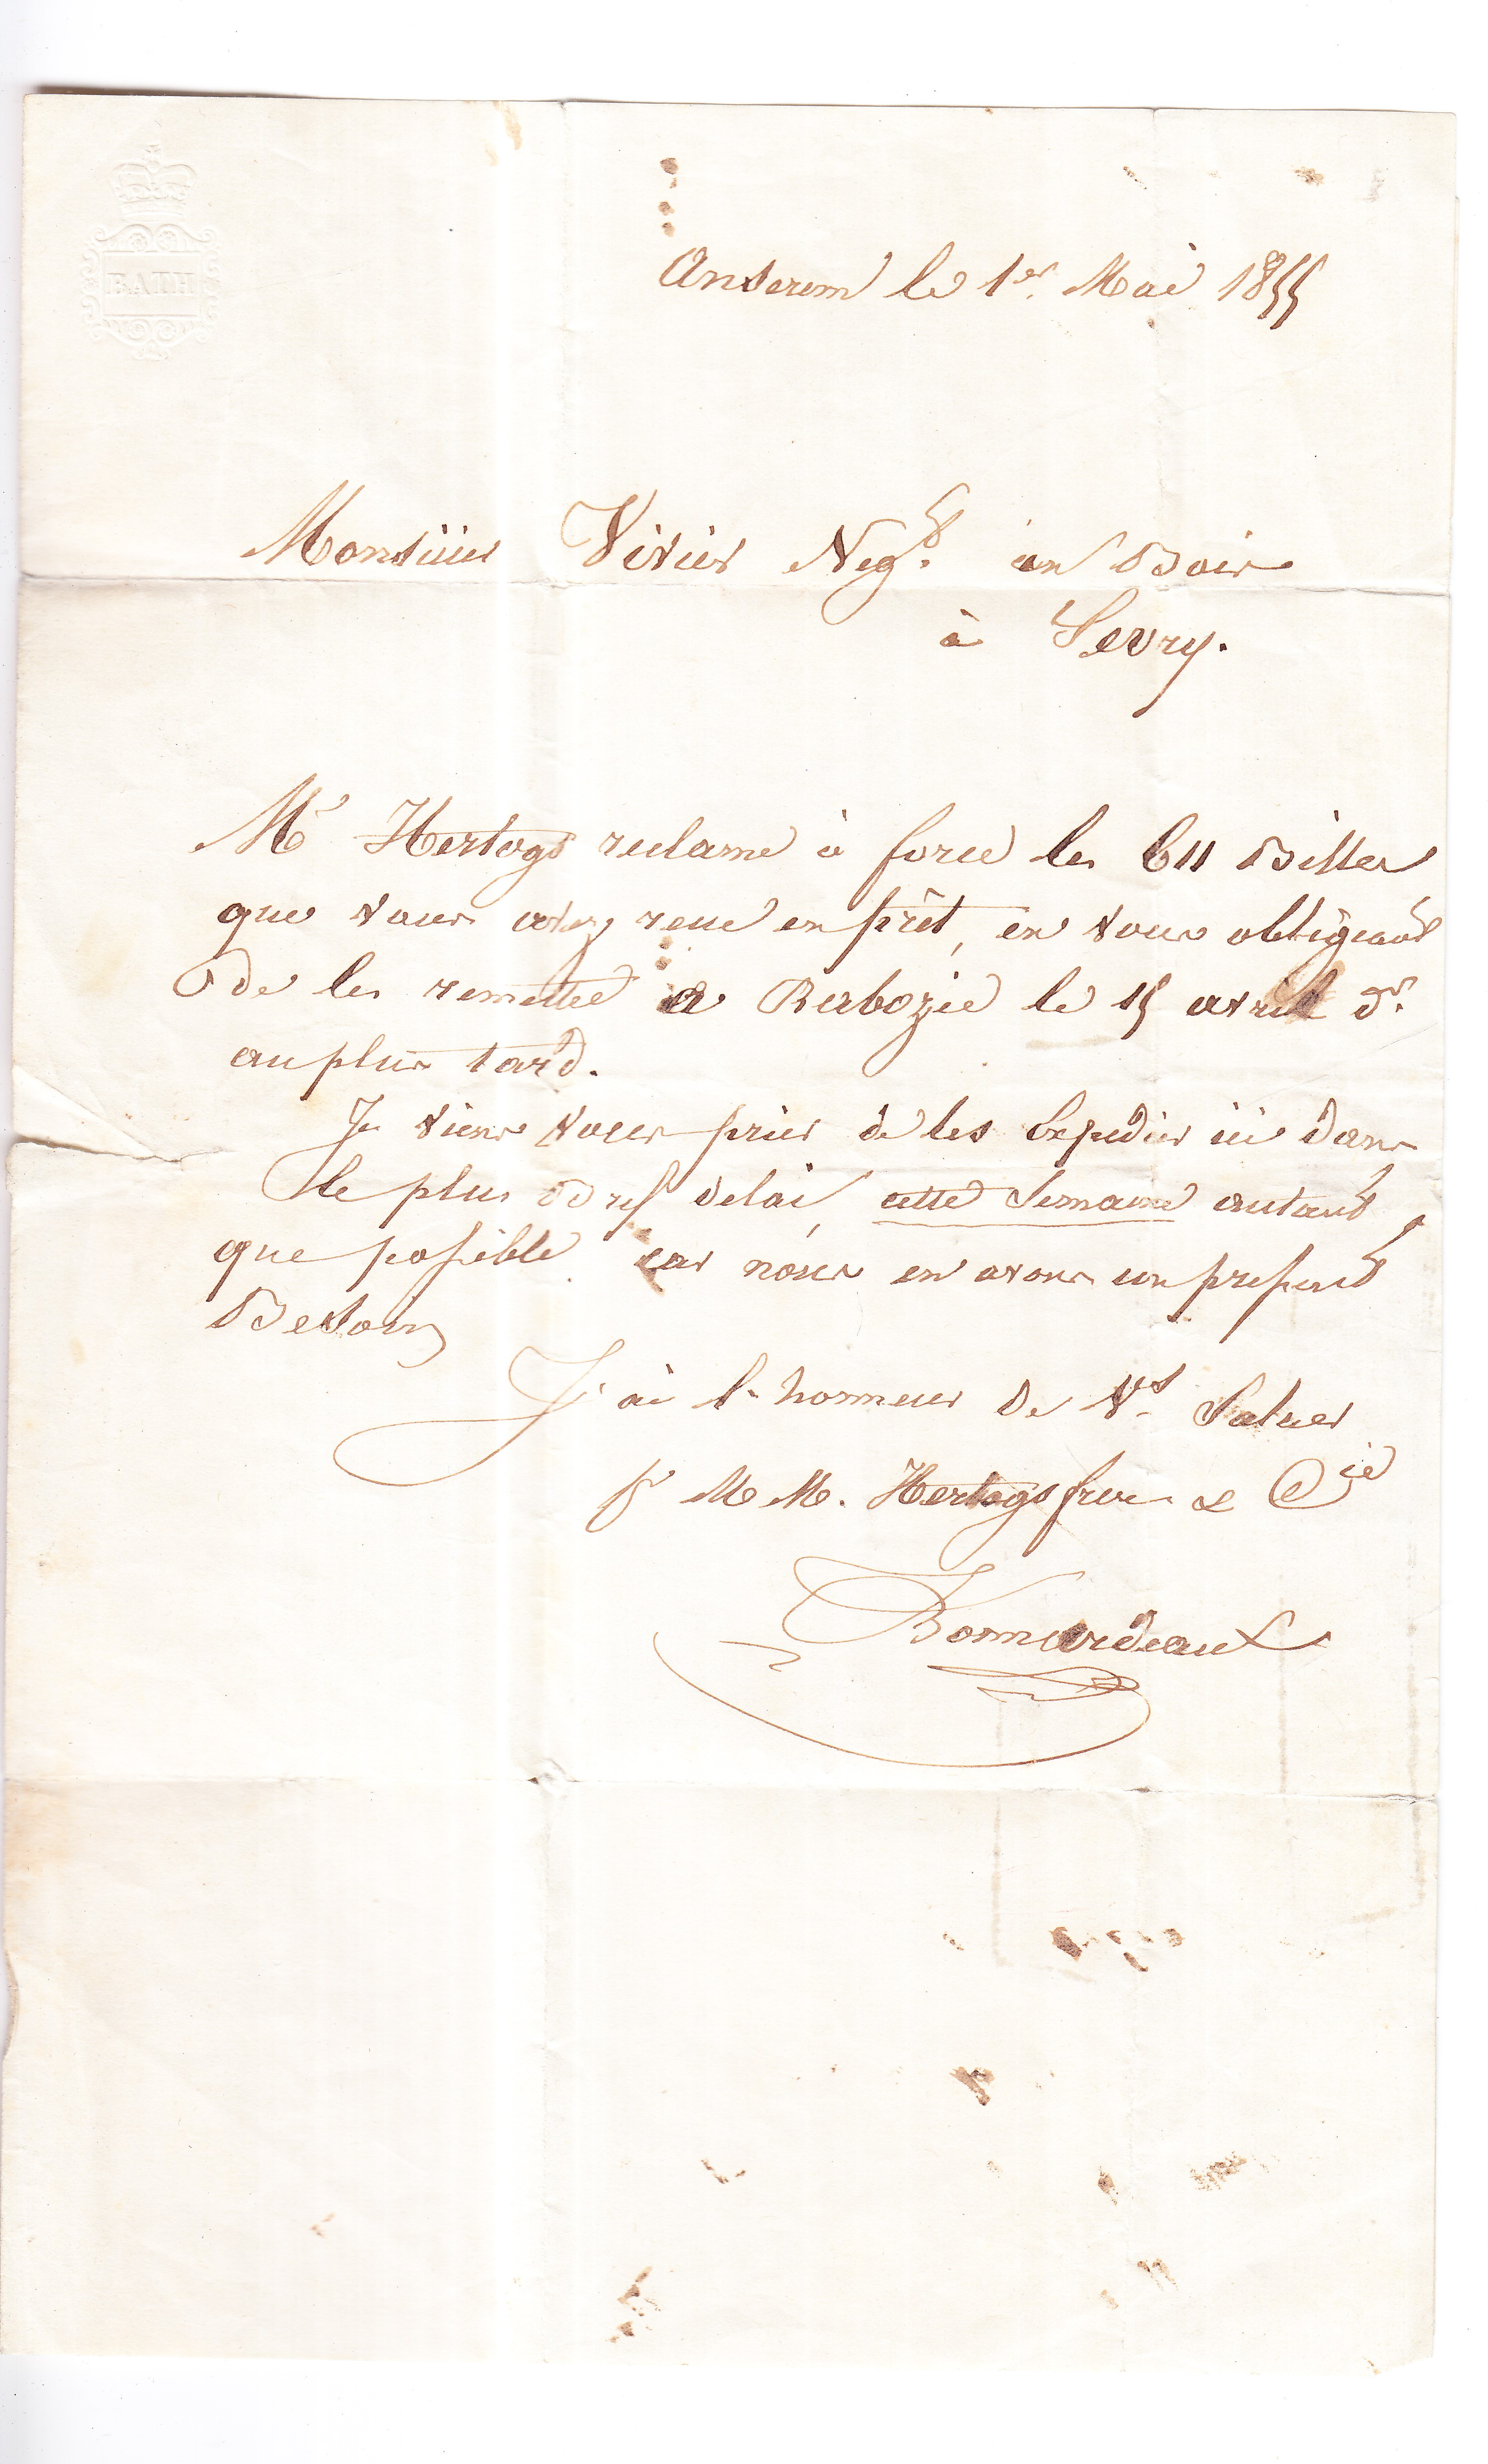 BATH
Anserem le 1er Mai 1855
Monsieur Vivier Negt. en Bois
à Sevry.
Mr Hertogs reclame à force les 611 Billes
que vous avez recue en prêt, en vous obligeant
de les remettre a Rebozée le 15 avril dr.
au plus tard.
Je viens vous prier de les Expedier ici dans
le plus Bref delai, cette Semaine autant
que possible car nous en avons un pressent
Besoin
J'ai l'honneur de Vs. Saluer
pr M M. Hertogs freres & Cie
Bommerdeaux